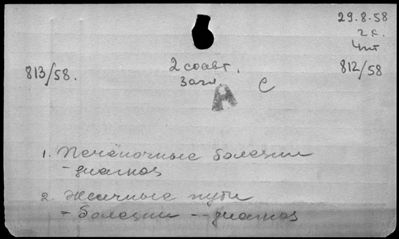 29.8.58
2 с.
4 шт
813/58.
2 соавт.
812/58
Загл.
А
С
1. Печёночные болезни
- диагноз
2. Желчные пути
- болезни -- диагноз